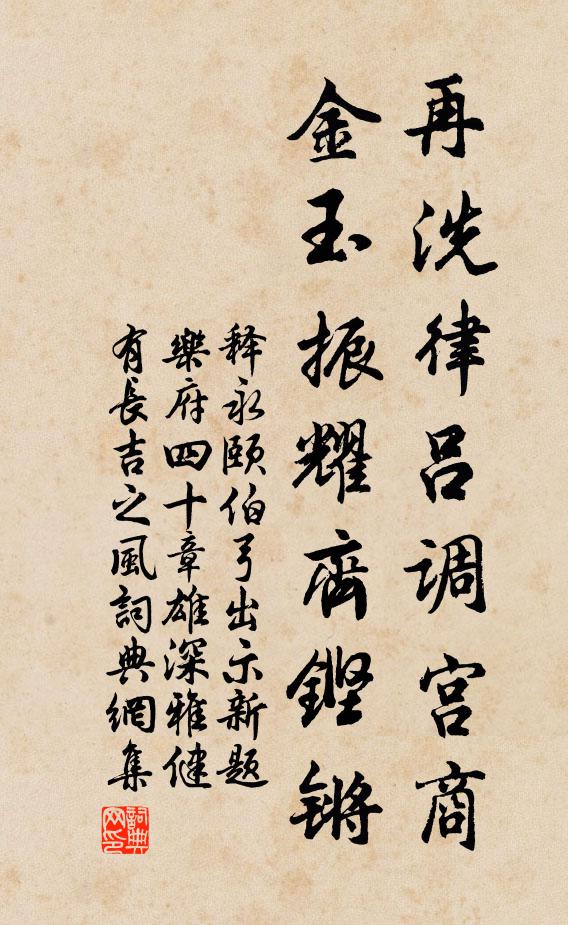 再洗律吕调宫商
金玉振耀齐铿锵
释永颐伯弓出示新题
樂府四十章雄深雅健
有長吉之風詞典網集
詞典网印